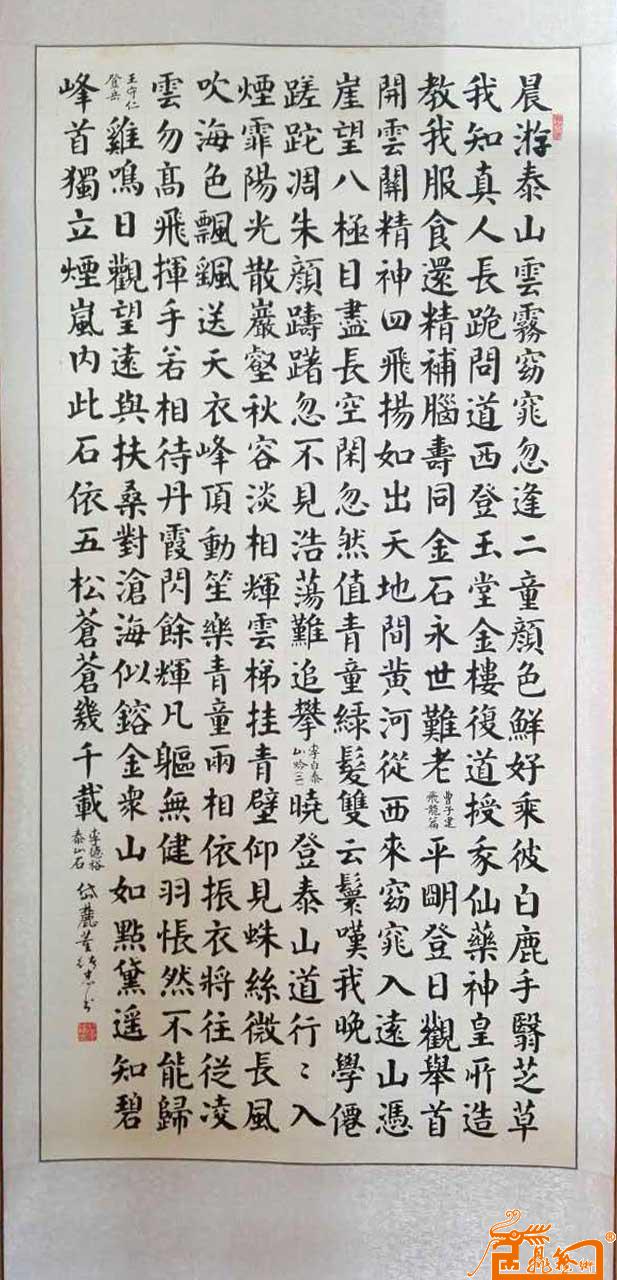 晨游泰山雲霧窈窕忽逢二童顏色鮮好乘彼白鹿手翳芝草
我知真人長跪問道西登玉堂金樓復道授我仙藥神皇所造
教我服食還精補腦壽同金石永世難老曹子建飛龍篇平明登日觀舉首
開雲關精神四飛揚如出天地間黄河從西來窈窕入遠山憑
崖望八極目盡長空閑忽然值青童綠髮雙云鬟嘆我晚學僊
蹉跎凋朱顏躊躇忽不見浩蕩難追攀李白泰山吟(三)曉登泰山道行〻入
煙霏陽光散巖壑秋容淡相輝雲梯挂青壁仰見蛛絲微長風
吹海色飄飄送天衣峰頂動笙樂青童兩相依振衣將往從凌
雲勿高飛揮手若相待丹霞閃餘輝凡軀無健羽悵然不能歸
王守仁登岳雞鳴日觀望遠與扶桑對滄海似鎔金衆山如點黛遥知碧
峰首獨立煙嵐内此石依五松蒼蒼幾千載李德裕泰山石岱麓